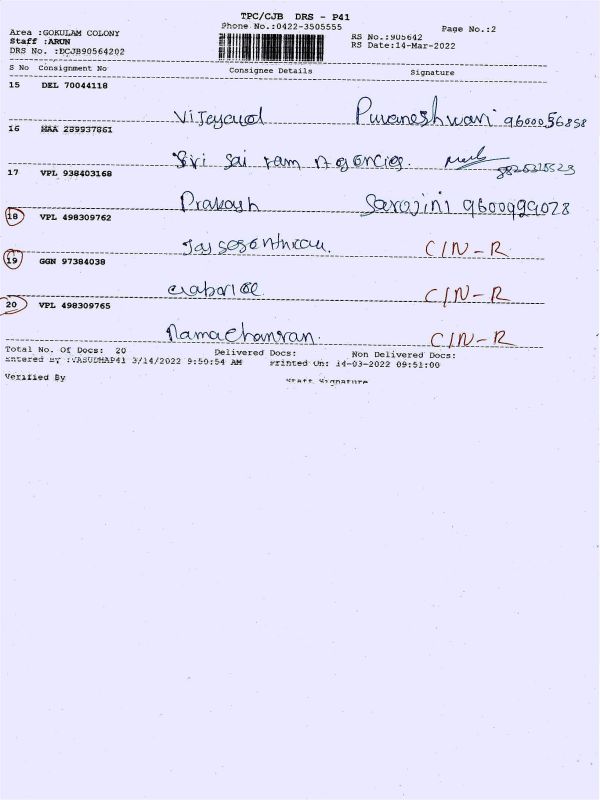 TPC/CJB DRS - P41
Area :GOKULAM COLONY Phone No.:0422-3505555 Page No.:2
Staff :ARUN RS No.:905642
DRS No. :DCJB90564202 RS Date:14-Mar-2022
S No Consignment No Consignee Details Signature
15 DEL 70044118
Puvaneshwari 96000 56858
16 MAA 239937861
Sri Sai ram Agencies.
17 VPL 938403168
Prakash Sarojini 9600999078
18 VPL 498309762
C/N-R
19 GGN 97384038
C/N-R
20 VPL 498309765
Ramachanran. C/N-R
Total No. Of Docs: 20 Delivered Docs: Non Delivered Docs:
Entered By :VASUDHAP41 3/14/2022 9:50:54 AM Printed On: 14-03-2022 09:51:00
Verified By Staff Signature